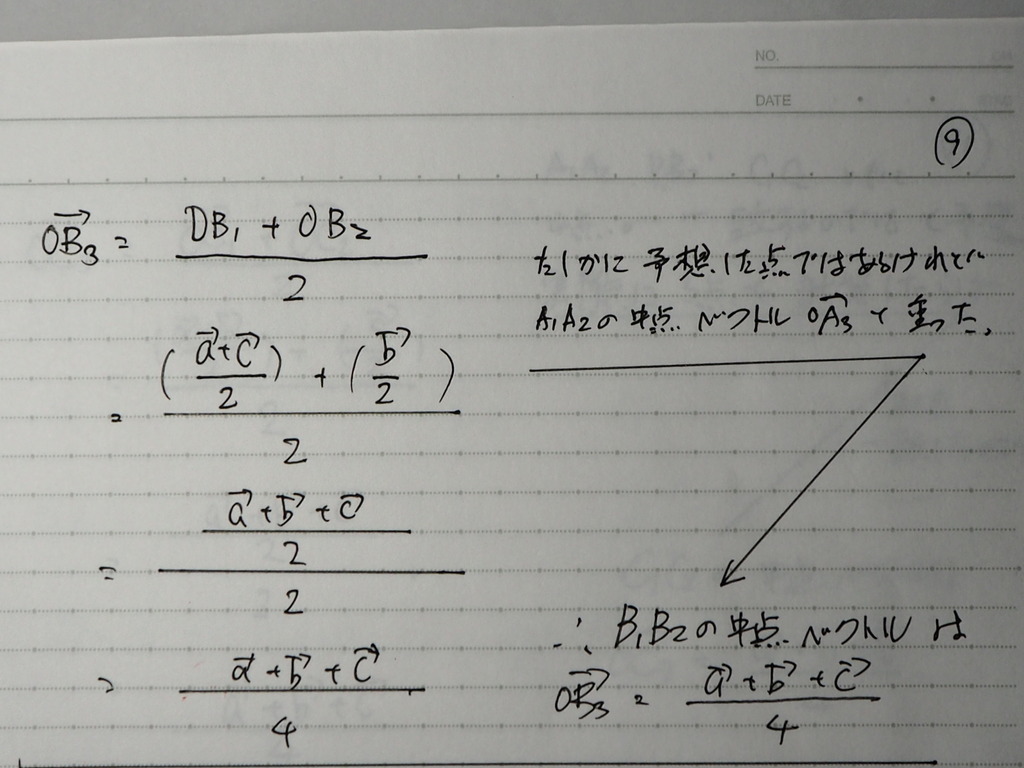 NO.
DATE
⑨
$\overrightarrow{OB_3} = \frac{OB_1 + OB_2}{2}$
$= \frac{(\frac{\vec{a}+\vec{c}}{2}) + (\frac{\vec{b}}{2})}{2}$
$= \frac{\frac{\vec{a}+\vec{b}+\vec{c}}{2}}{2}$
$= \frac{\vec{a}+\vec{b}+\vec{c}}{4}$
たしかに予想した点ではあるけれど
A₁A₂の中点ベクトル $\overrightarrow{OA_3}$ と重った。
∴ B₁B₂の中点ベクトルは
$\overrightarrow{OB_3} = \frac{\vec{a}+\vec{b}+\vec{c}}{4}$